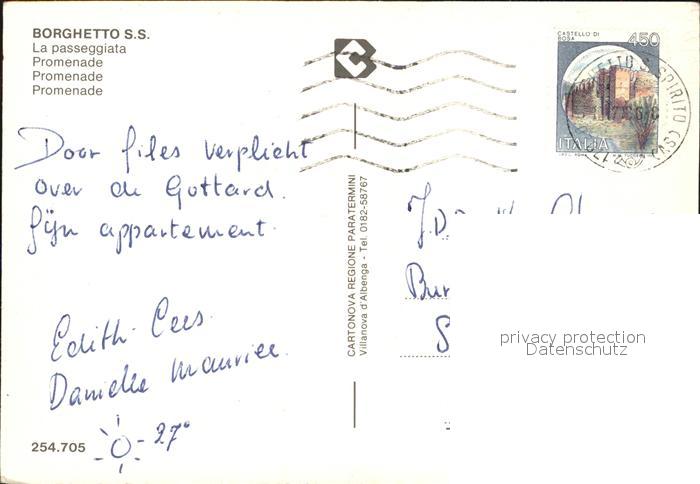 BORGHETTO S.S.
La passeggiata
Promenade
Promenade
Promenade
CASTELLO DI
ROSA
450
ITALIA
Door files verplicht
over de Gottard.
Fijn appartement.
Edith. Cees.
Danielle Maurice.
27°
254.705
CARTONOVA REGIONE PARATERMINI
Villanova d'Albenga - Tel. 0182-58767
J.D.
Bur
S
privacy protection
Datenschutz